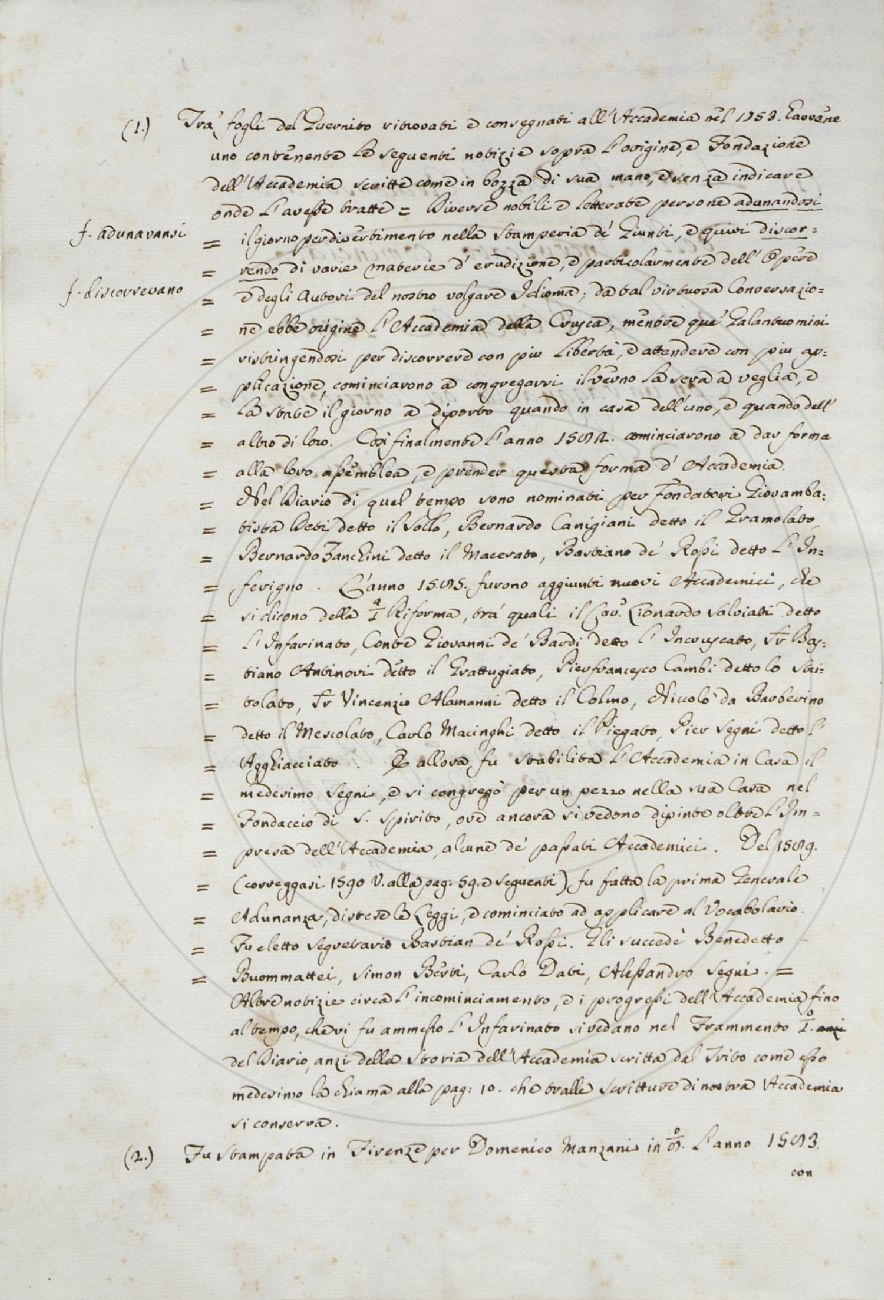 (1.) Trà fogli del Guernito ritrovati e consegnati all'Accademia nel 1753. eravene
uno contenente le seguenti notizie sopra l'origine, e Fondazione
dell'Accademia scritte come in bozza di sua mano, e senza indicare
onde l'avesse tratte = Diverse nobili e letterate persone adunandosi
f. adunavansi
= il giorno per divertimento nella Stamperia de' Giunti, e quivi discor-
= rendo di varie materie d'erudizione, e particolarmente dell'Opere
f. discorrevano
= e degli Autori del nostro volgare Idioma; da tal virtuosa Conversazio-
= ne ebbe origine l'Accademia della Crusca, mentre que' Galantuomini
= ristringendosi per discorrere con più libertà, e attendere con più ap-
= plicazione, cominciarono a congregarsi il verno la sera a veglia, e
= la state il giorno a diporto quando in casa dell'uno, e quando dell'
= altro di loro. Così finalmente l'anno 1582. cominciarono a dar forma
= alla loro assemblea, e prender questa forma d'Accademia.
= Nel Diario di quel tempo sono nominati per Fondatori Giovamba-
= tista Deti detto il Sollo, Bernardo Canigiani detto il Gramolato,
= Bernardo Zanchini detto il Macerato, Bastiano de' Rossi detto l'In-
= ferigno. L'anno 1585. furono aggiunti nuovi Accademici, che
= si dicono della 1.a Riforma, tra' quali il Cav.r Lionardo Salviati detto
= l'Infarinato, Conte Giovanni de' Bardi detto l'Incruscato, Fr Bas-
= tiano Antinori detto il Grattugiato, Pierfrancesco Cambi detto lo Stri-
= tolato, Fr Vincenzio Alamanni detto il Colino, Niccolò da Barberino
= detto il Mescolato, Carlo Macinghi detto il Piegato, Pier Segni detto l'
= Agghiacciato. E allora fu stabilita l'Accademia in Casa il
= medesimo Segni, e si congregò per un pezzo nella sua Casa nel
= Fondaccio di S. Spirito, ove ancora si vedono dipinte oltre l'Im-
= presa dell'Accademia, alcune de' passati Accademici. Del 1589.
= (correggasi 1590 V. alla pag: 59. e seguenti) fu fatta la prima Generale
= Adunanza, distese le Leggi, e cominciato ad applicare al Vocabolario.
= Fu eletto Segretario Bastian de' Rossi. Gli succedè Benedetto
= Buommattei, Simon Berti, Carlo Dati, Alessandro Segni. =
Altre notizie circa l'incominciamento, e i progressi dell'Accademia fino
al tempo, che vi fu ammesso l'Infarinato si vedano nel Frammento 1.o anzi
del Diario, anzi della Storia dell'Accademia scritta dal Trito come esso
medesimo la chiama alla pag: 10. che tralle scritture di nostra Accademia
si conserva.
(2.) Fu stampata in Firenze per Domenico Manzani in 8.o l'anno 1583.
con